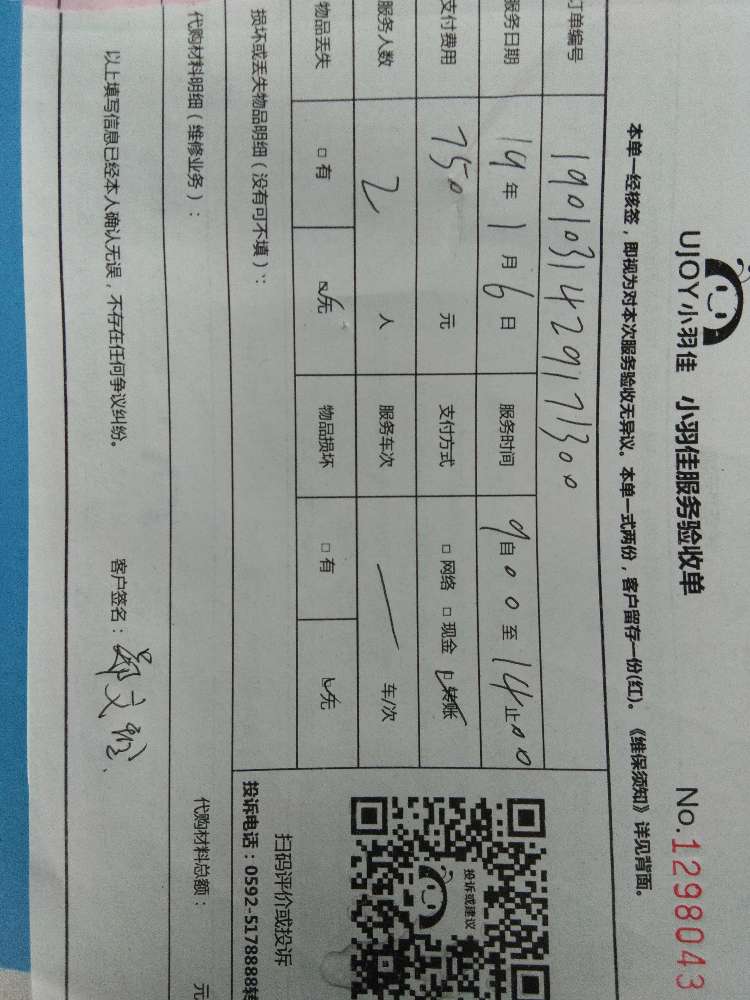 UJOY小羽佳 小羽佳服务验收单 No.1298043
本单一经核签，即视为对本次服务验收无异议。本单一式两份，客户留存一份(红)。《维保须知》详见背面。
订单编号 1901031429171300
服务日期 19年1月6日 服务时间 9自00至14止00
支付费用 750元 支付方式 □网络 □现金 □转账
服务人数 2人 服务车次 车/次
物品丢失 □有 □无 物品损坏 □有 □无
投诉或建议
损坏或丢失物品明细（没有可不填）：
扫码评价或投诉
投诉电话：0592-5178888转
代购材料明细（维修业务）： 代购材料总额： 元
以上填写信息已经本人确认无误，不存在任何争议纠纷。 客户签名：